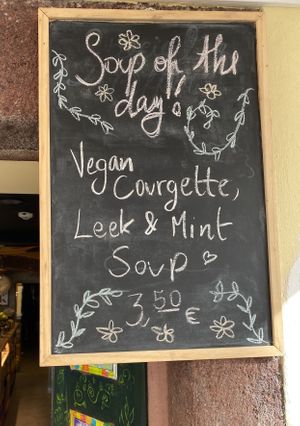 Soup of the
day!
Vegan
Courgette,
Leek & Mint
Soup ♡
3,50 €